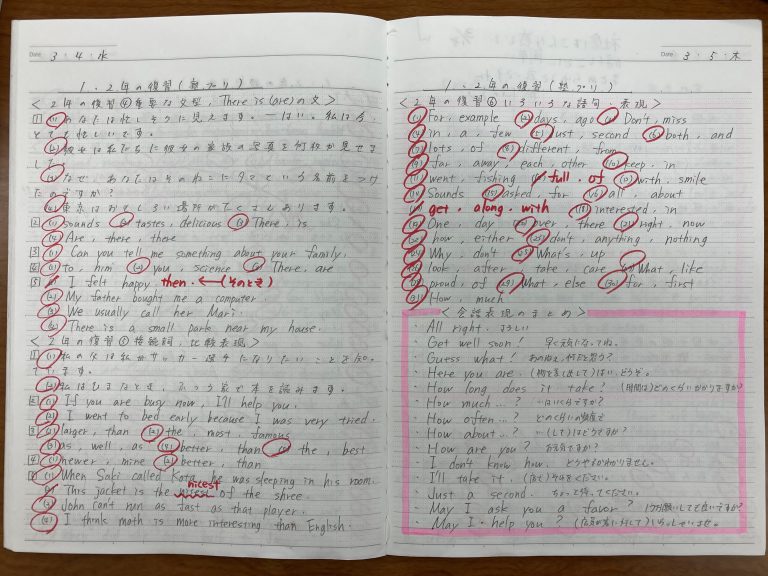 Date 3・4・水
1、2年の復習(塾プリ)
<2年の復習④重要な文型、There is (are)の文>
[1] (1) あなたは忙しそうに見えます。ーはい。私は今、
とても忙しいです。
(2) 彼女は私たちに彼女の家族の写真を何枚か見せま
した。
(3) なぜ、あなたはそのねこにタマという名前をつけ
たのですか?
(4) 東京はおもしろい場所がたくさんあります。
[2] (1) sounds (2) tastes, delicious (3) There, is
(4) Are, there, there
[3] (1) Can you tell me something about your family.
[4] (1) to, him (2) you, science (3) There, are
[5] (1) I felt happy then. ←(そのとき)
(2) My father bought me a computer.
(3) We usually call her Mari.
(4) There is a small park near my house.
<2年の復習⑤接続詞、比較表現>
[1] (1) 私の父は私がサッカー選手になりたいことを知っ
ています。
(2) 私はひまなとき、ふつう家で本を読みます。
[2] (1) If you are busy now, I'll help you.
(2) I went to bed early because I was very tried.
[3] (1) larger, than (2) the, most, famous
(3) as, well, as (4) better, than (5) the, best
[4] (1) newer, mine (2) better, than
(1) When Saki called Kota, he was sleeping in his room.
nicest
(2) This jacket is the of the shree.
(3) John can't run as fast as that player.
(4) I think math is more interesting than English.
Date 3・5・木
1、2年の復習(塾プリ)
<2年の復習⑥いろいろな語句、表現>
(1) For, example (2) days, ago (3) Don't, miss
(4) in, a, few (5) Just, second (6) both, and
(7) lots, of (8) different, from
(9) far, away, each, other (10) keep, in
(11) went, fishing full, of (13) with, smile
(14) Sounds (15) asked, for (16) all, about
get, along, with (18) interested, in
(19) One, day (20) over, there (21) right, now
how, either (23) don't, anything, nothing
Why, don't What's, up
look, after take, care What, like
proud, of (29) What, else (30) for, first
(31) How, much
<会話表現のまとめ>
・All right. よろしい
・Get well soon! 早く元気になってね。
・Guess what! あのねえ、何だと思う?
・Here you are. (物を差し出して)はい、どうぞ。
・How long does it take? (時間は)どのくらいかかりますか?
・How much…? …はいくらですか?
・How often…? どのくらいの頻度で
・How about…? …(して)はどうですか?
・How are you? お元気ですか?
・I don't know how. どうやるかわかりません。
・I'll take it. (店で)それをください。
・Just a second. ちょっと待ってください。
・May I ask you a favor? 1つお願いしても良いですか?
・May I help you? (店員が客に対して)いらっしゃいませ。